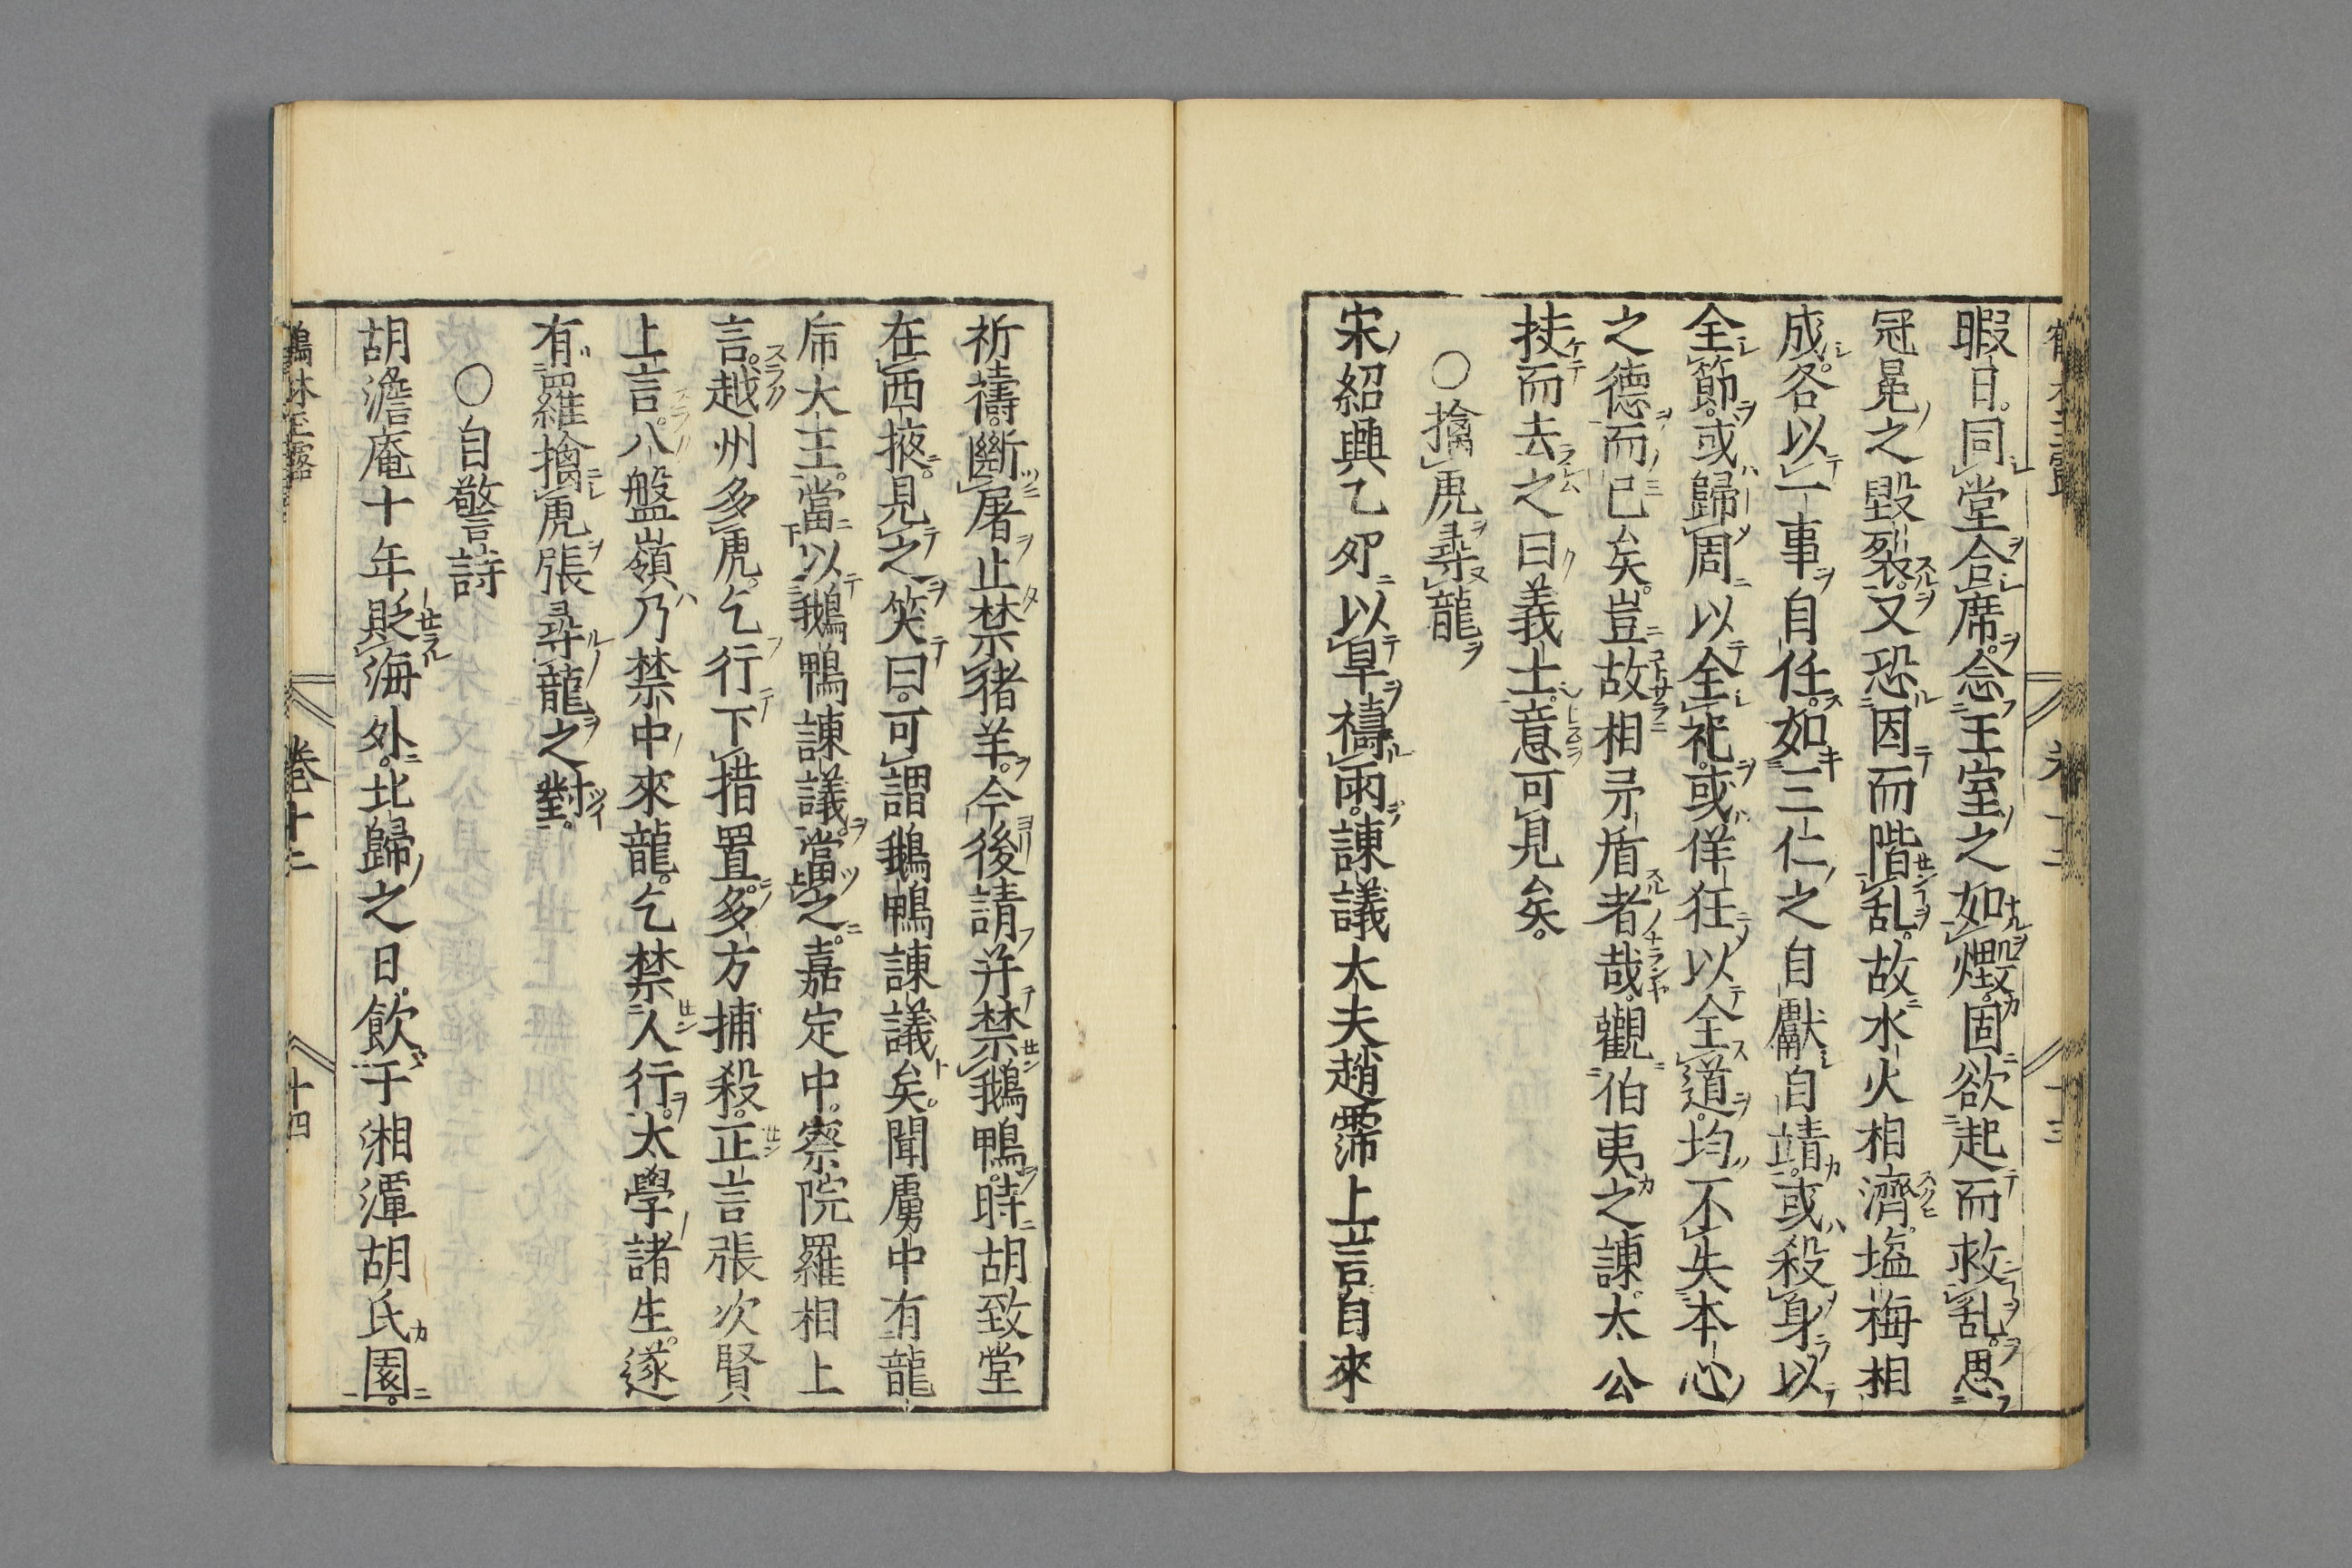 暇日。同堂合席。念王室之如燬。固欲起而救乱。思
冠冕之毀裂。又恐因而階乱。故水火相濟。塩梅相
成。各以一事自任。如三仁之自獻自靖。或殺身以
全節。或歸周以全祀。或佯狂以全道。均不失本心
之德而已矣。豈故相矛盾者哉。觀伯夷之諫。太公
扶而去之曰義士。意可見矣。
○擒虎尋龍
宋紹興乙夘以旱禱雨。諫議大夫趙霈上言自來
祈禱。斷屠止禁猪羊。今後請并禁鵝鴨。時胡致堂
在西掖。見之笑曰。可謂鵝鴨諫議矣。聞虜中有龍
帍大王。當以鵝鴨諫議。當之。嘉定中。察院羅相上
言。越州多虎。乞行下措置。多方捕殺。正言張次賢
上言。八盤嶺乃禁中來龍。乞禁人行。太學諸生。遂
有羅擒虎張尋龍之對。
○自警詩
胡澹庵十年貶海外。北歸之日。飲于湘潭胡氏園。
鶴林玉露 卷十二 十四